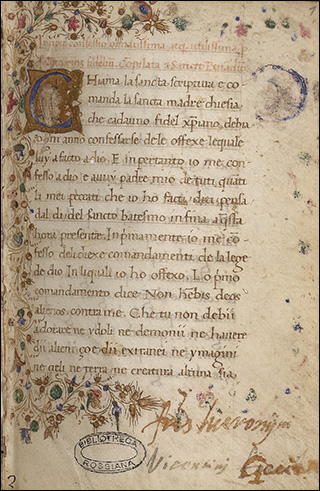 confessio ornatissima, atq, utilissima,
Copilata a Sancto
CHuma la sancta scriptura e co
manda la sancta madre chiesia
che cadauno fidel xpiano debia
ogni anno confessarse dele offexe lequale
luy a facto a dio. E inpertanto io me con
fesso a dio e a vuy padre mio de tuti quāti
li mei pecati che io ho facti, dicti pensa
dal di del sancto batesmo in fina
hora presente. Inprimamente io me cō
fesso deli dexe comandamenti de la lege
de dio In li quali io ho offexo. Lo primo
comandamento dice Non deos
alienos contra me. Che tu non debii
adorare ne ydoli ne demonii ne havere
dii alieni çoe dii extranei ne ymagini
ne celi ne terra ne creatura alcuna sia.
hieronymi
BIBLIOTHECA
ROSSIANA